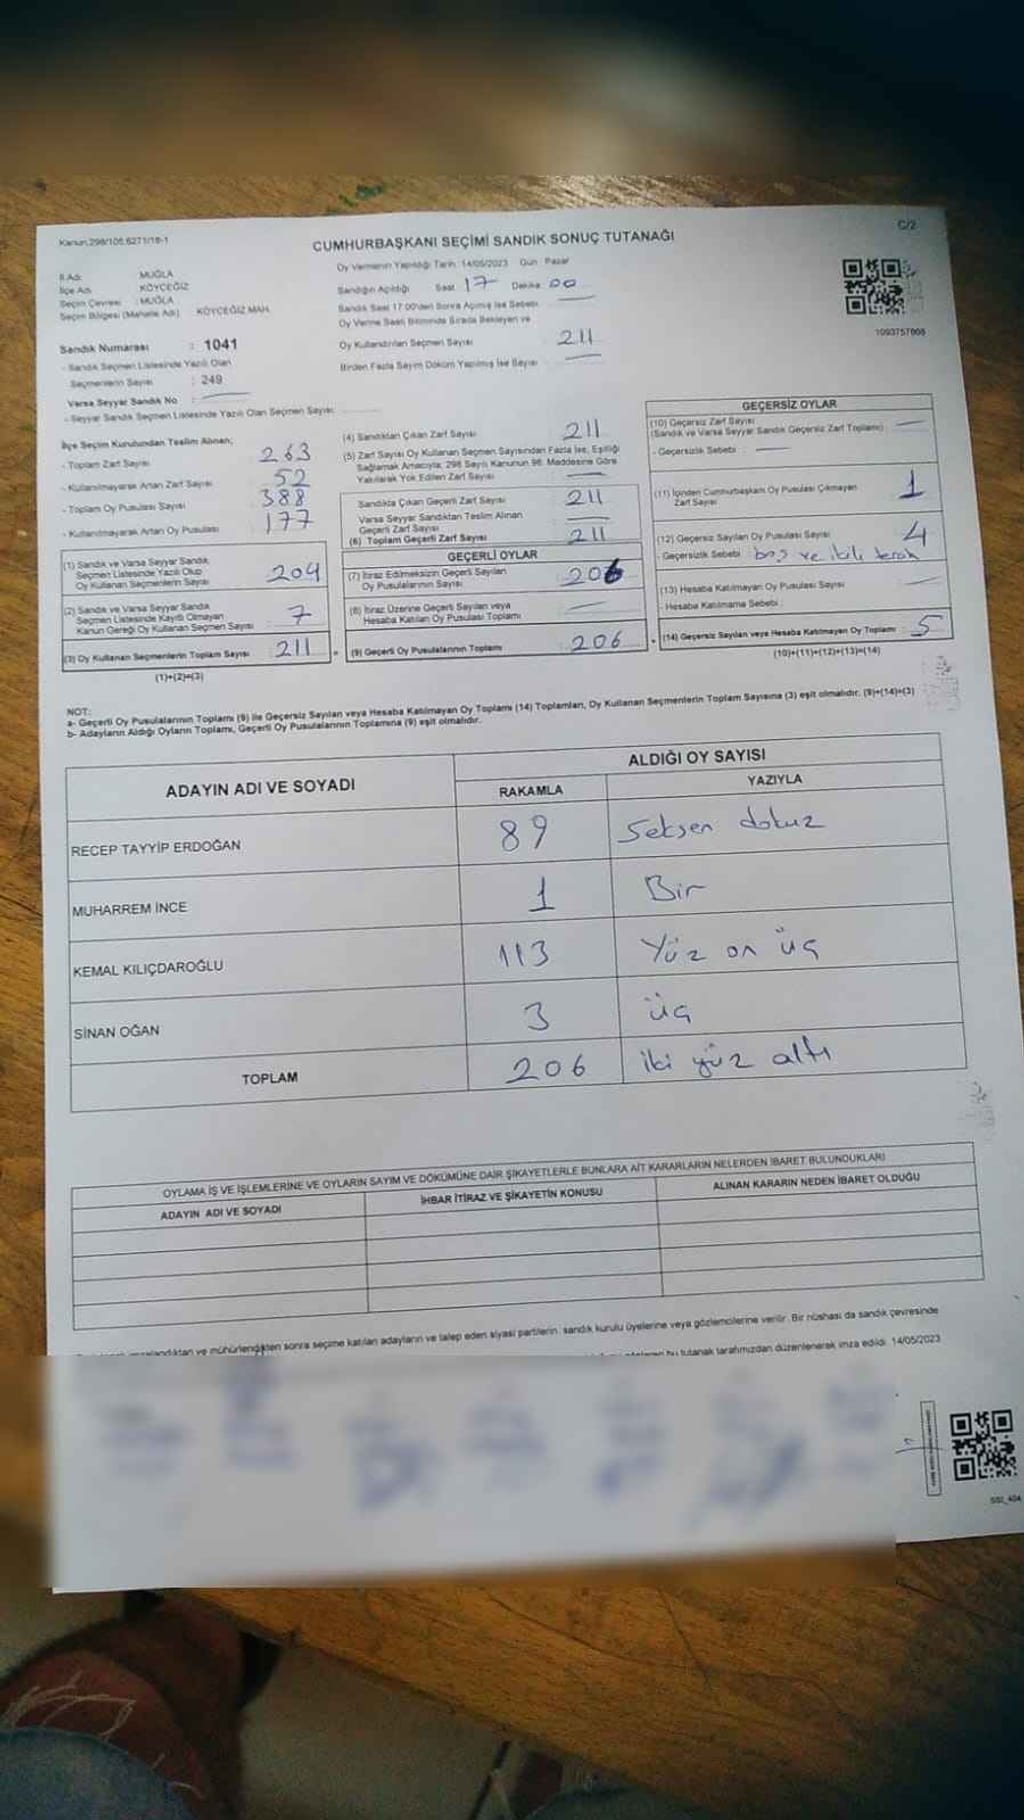 Kanun:298/105,6271/18-1
C/2
CUMHURBAŞKANI SEÇİMİ SANDIK SONUÇ TUTANAĞI
İl Adı : MUĞLA
İlçe Adı : KÖYCEĞİZ
Seçim Çevresi : MUĞLA
Seçim Bölgesi (Mahalle Adı) : KÖYCEĞİZ MAH.
Sandık Numarası : 1041
- Sandık Seçmen Listesinde Yazılı Olan
Seçmenlerin Sayısı : 249
Varsa Seyyar Sandık No :
- Seyyar Sandık Seçmen Listesinde Yazılı Olan Seçmen Sayısı
Oy Vermenin Yapıldığı Tarih: 14/05/2023 Gün: Pazar
Sandığın Açıldığı Saat 17 Dakika 00
Sandık Saat 17:00'den Sonra Açılmış İse Sebebi
Oy Verme Saati Bitiminde Sırada Bekleyen ve
Oy Kullandırılan Seçmen Sayısı 211
Birden Fazla Sayım Döküm Yapılmış İse Sayısı
1093757868
İlçe Seçim Kurulundan Teslim Alınan;
- Toplam Zarf Sayısı 263
- Kullanılmayarak Artan Zarf Sayısı 52
- Toplam Oy Pusulası Sayısı 388
- Kullanılmayarak Artan Oy Pusulası 177
(1) Sandık ve Varsa Seyyar Sandık
Seçmen Listesinde Yazılı Olup
Oy Kullanan Seçmenlerin Sayısı 204
(2) Sandık ve Varsa Seyyar Sandık
Seçmen Listesinde Kayıtlı Olmayan
Kanun Gereği Oy Kullanan Seçmen Sayısı 7
(3) Oy Kullanan Seçmenlerin Toplam Sayısı 211
(1)+(2)=(3)
(4) Sandıktan Çıkan Zarf Sayısı 211
(5) Zarf Sayısı Oy Kullanan Seçmen Sayısından Fazla İse, Eşitliği
Sağlamak Amacıyla; 298 Sayılı Kanunun 98. Maddesine Göre
Yakılarak Yok Edilen Zarf Sayısı
Sandıkta Çıkan Geçerli Zarf Sayısı 211
Varsa Seyyar Sandıktan Teslim Alınan
Geçerli Zarf Sayısı
(6) Toplam Geçerli Zarf Sayısı 211
GEÇERLİ OYLAR
(7) İtiraz Edilmeksizin Geçerli Sayılan
Oy Pusulalarının Sayısı 206
(8) İtiraz Üzerine Geçerli Sayılan veya
Hesaba Katılan Oy Pusulası Toplamı
(9) Geçerli Oy Pusulalarının Toplamı 206
GEÇERSİZ OYLAR
(10) Geçersiz Zarf Sayısı
(Sandık ve Varsa Seyyar Sandık Geçersiz Zarf Toplamı)
- Geçersizlik Sebebi
(11) İçinden Cumhurbaşkanı Oy Pusulası Çıkmayan
Zarf Sayısı 1
(12) Geçersiz Sayılan Oy Pusulası Sayısı 4
- Geçersizlik Sebebi : boş ve ikili tercih
(13) Hesaba Katılmayan Oy Pusulası Sayısı
- Hesaba Katılmama Sebebi :
(14) Geçersiz Sayılan veya Hesaba Katılmayan Oy Toplamı 5
(10)+(11)+(12)+(13)=(14)
NOT:
a- Geçerli Oy Pusulalarının Toplamı (9) ile Geçersiz Sayılan veya Hesaba Katılmayan Oy Toplamı (14) Toplamları, Oy Kullanan Seçmenlerin Toplam Sayısına (3) eşit olmalıdır. (9)+(14)=(3)
b- Adayların Aldığı Oyların Toplamı, Geçerli Oy Pusulalarının Toplamına (9) eşit olmalıdır.
ADAYIN ADI VE SOYADI
ALDIĞI OY SAYISI
RAKAMLA YAZIYLA
RECEP TAYYİP ERDOĞAN 89 Seksen dokuz
MUHARREM İNCE 1 Bir
KEMAL KILIÇDAROĞLU 113 Yüz on üç
SİNAN OĞAN 3 üç
TOPLAM 206 iki yüz altı
OYLAMA İŞ VE İŞLEMLERİNE VE OYLARIN SAYIM VE DÖKÜMÜNE DAİR ŞİKAYETLERLE BUNLARA AİT KARARLARIN NELERDEN İBARET BULUNDUKLARI
ADAYIN ADI VE SOYADI İHBAR İTİRAZ VE ŞİKAYETİN KONUSU ALINAN KARARIN NEDEN İBARET OLDUĞU
imzalandıktan ve mühürlendikten sonra seçime katılan adayların ve talep eden siyasi partilerin sandık kurulu üyelerine veya gözlemcilerine verilir. Bir nüshası da sandık çevresinde
bu tutanak tarafımızdan düzenlenerek imza edildi. 14/05/2023